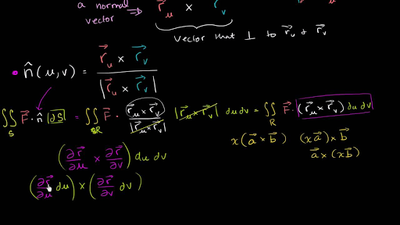 a normal
vector → r⃗_u × r⃗_v
vector that ⊥ to r⃗_u & r⃗_v
• n̂(u,v) = (r⃗_u × r⃗_v) / |r⃗_u × r⃗_v|
∬_S F⃗ · n̂ dS = ∬_R F⃗ · (r⃗_u × r⃗_v) / |r⃗_u × r⃗_v| |r⃗_u × r⃗_v| du dv = ∬_R F⃗ · (r⃗_u × r⃗_v) du dv
(∂r⃗/∂u × ∂r⃗/∂v) du dv
x(a⃗ × b⃗) (xa⃗) × b⃗
a⃗ × (xb⃗)
(∂r⃗/∂u du) × (∂r⃗/∂v dv)